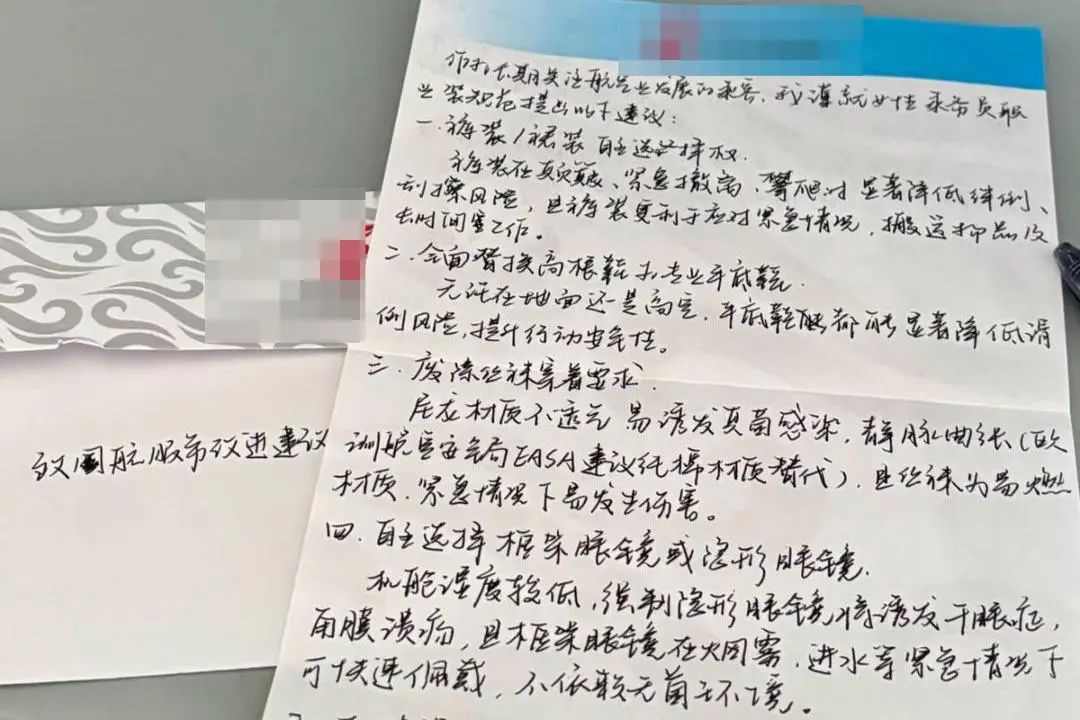 作为长期关注航空业发展的乘客，我谨就女性乘务员职
业装规范提出以下建议：
一．裤装/裙装自主选择权．
裤装在颠簸、紧急撤离、攀爬时显著降低绊倒、
刮擦风险，且裤装更利于应对紧急情况，搬运物品及
长时间客工作。
二．全面替换高根鞋为专业平底鞋．
无论在地面还是高空，平底鞋都能显著降低滑
倒风险，提升行动安全性。
三．废除丝袜穿着要求．
尼龙材质不透气易诱发真菌感染，静脉曲张（欧
洲航空安全局EASA建议纯棉材质替代），且丝袜为易燃
材质．紧急情况下易发生伤害。
四．自主选择框架眼镜或隐形眼镜．
机舱湿度较低，强制隐形眼镜将诱发干眼症，
角膜溃疡，且框架眼镜在火烟雾，进水等紧急情况下
可快速佩戴，不依赖无菌环境。
致国航服饰改进建议